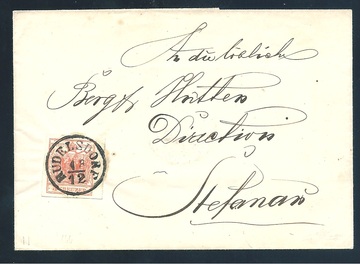 An die löbliche
Berg & Hütten
Direction
Stefanau
RUDELSDORF
18/12